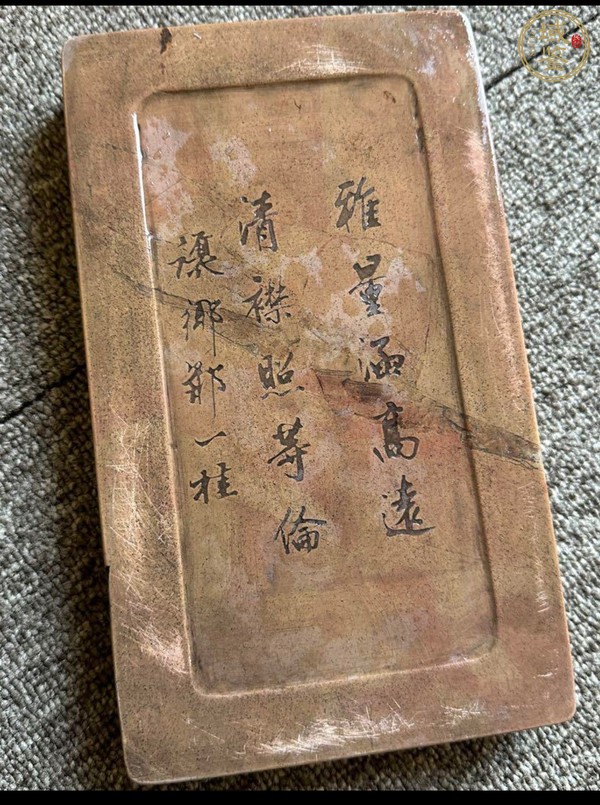 雅量涵高遠
清襟照等倫
讓鄉鄒一桂